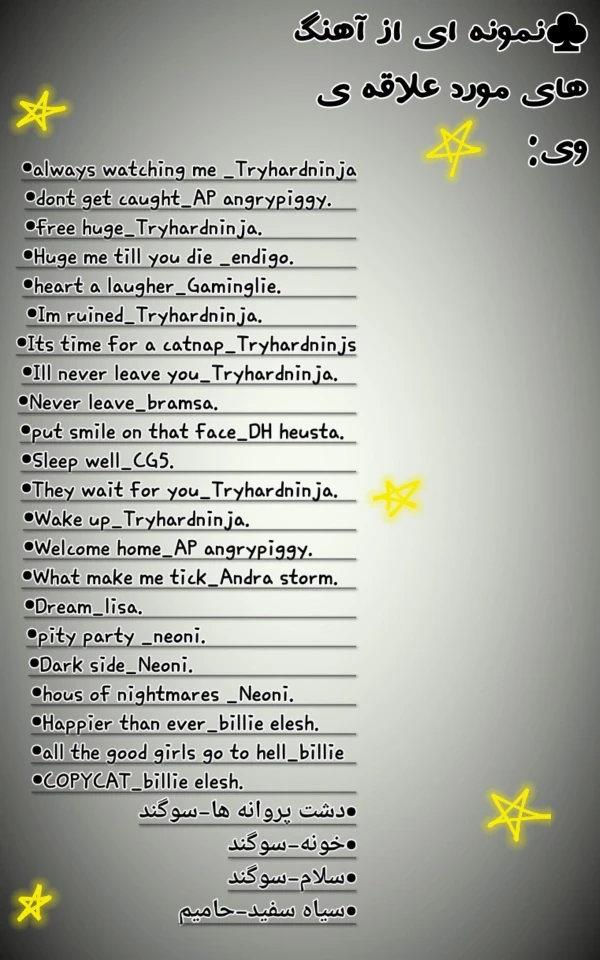 ♣نمونه ای از آهنگ
های مورد علاقه ی
وی:
•always watching me _Tryhardninja
•dont get caught_AP angrypiggy.
•free huge_Tryhardninja.
•Huge me till you die _endigo.
•heart a laugher_Gaminglie.
•Im ruined_Tryhardninja.
•Its time for a catnap_Tryhardninjs
•Ill never leave you_Tryhardninja.
•Never leave_bramsa.
•put smile on that face_DH heusta.
•Sleep well_CG5.
•They wait for you_Tryhardninja.
•Wake up_Tryhardninja.
•Welcome home_AP angrypiggy.
•What make me tick_Andra storm.
•Dream_lisa.
•pity party _neoni.
•Dark side_Neoni.
•hous of nightmares _Neoni.
•Happier than ever_billie elesh.
•all the good girls go to hell_billie
•COPYCAT_billie elesh.
•دشت پروانه ها-سوگند
•خونه-سوگند
•سلام-سوگند
•سیاه سفید-حامیم